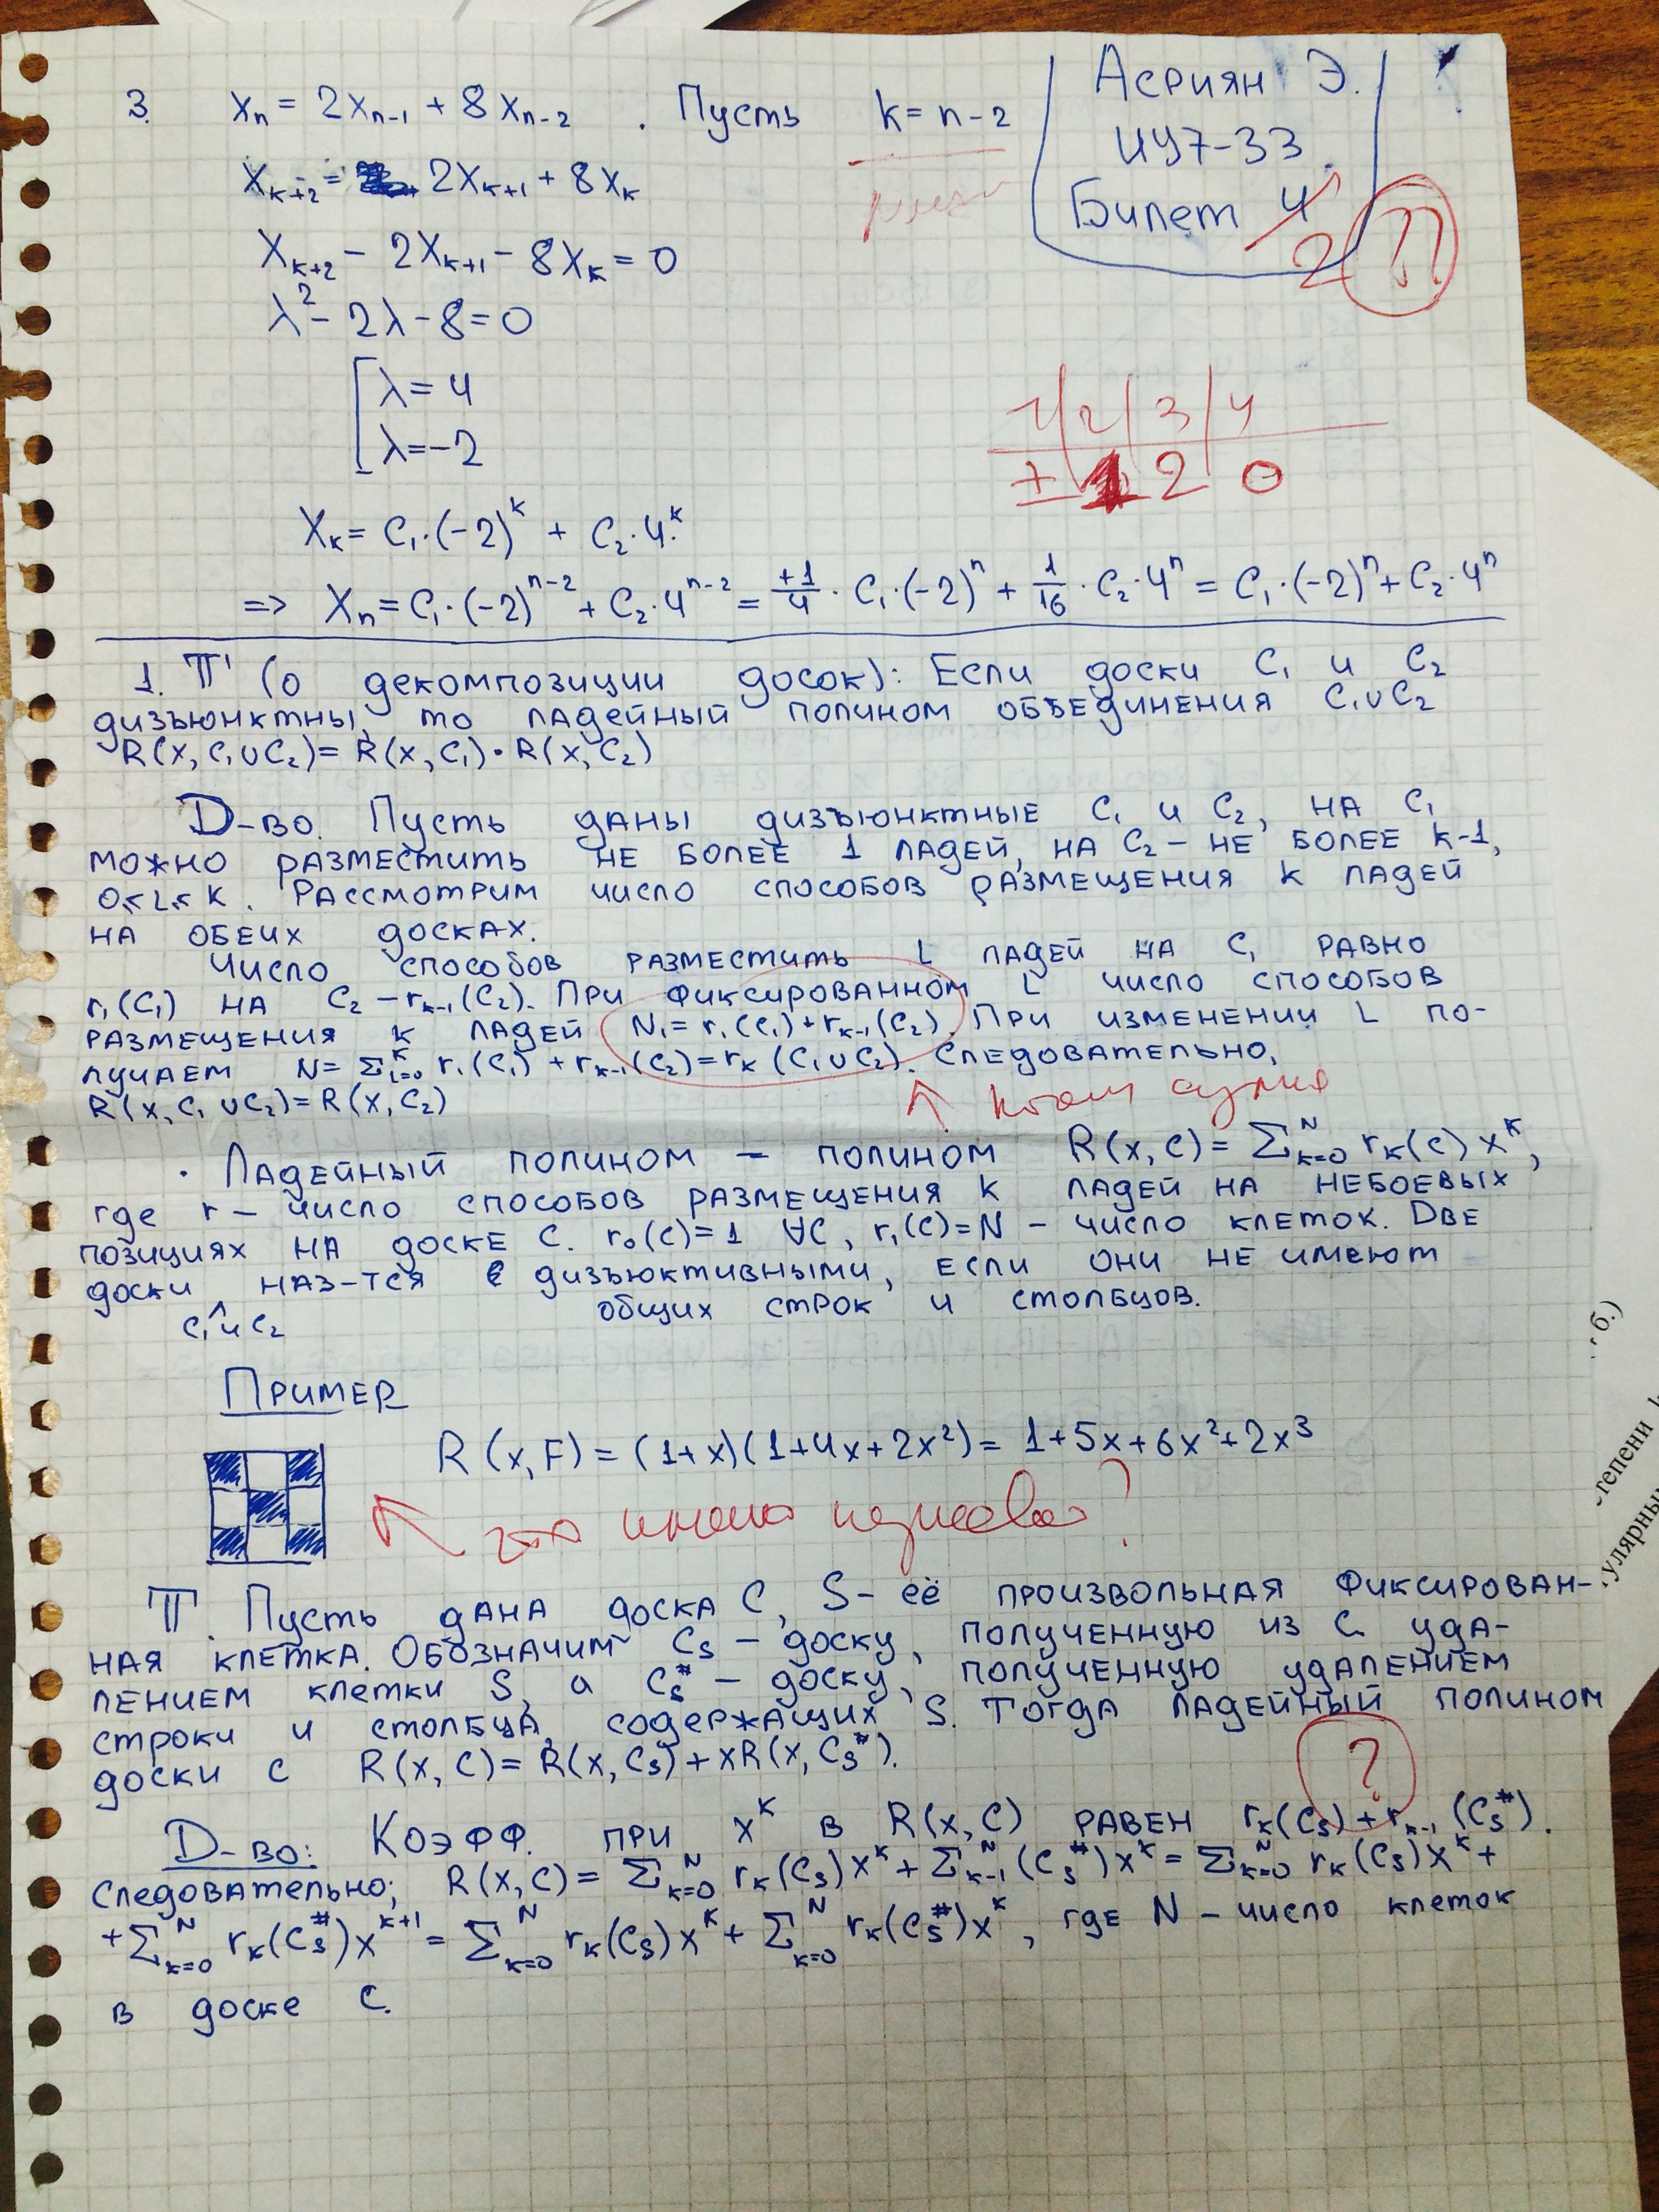 3. Xₙ = 2Xₙ₋₁ + 8Xₙ₋₂ . Пусть k = n-2
Асриян Э.
ИУ7-33
Билет 4
2
П
Xₖ₊₂ = 2Xₖ₊₁ + 8Xₖ
Xₖ₊₂ - 2Xₖ₊₁ - 8Xₖ = 0
λ² - 2λ - 8 = 0
λ = 4
λ = -2
1 | 2 | 3 | 4
± 1 2 0
Xₖ = C₁·(-2)ᵏ + C₂·4ᵏ
=> Xₙ = C₁·(-2)ⁿ⁻² + C₂·4ⁿ⁻² = +1/4 · C₁·(-2)ⁿ + 1/16 · C₂·4ⁿ = C₁·(-2)ⁿ + C₂·4ⁿ
1. Т (о декомпозиции досок): Если доски C₁ и C₂
дизъюнктны, то ладейный полином объединения C₁∪C₂
R(x, C₁∪C₂) = R(x, C₁)·R(x, C₂)
D-во. Пусть даны дизъюнктные C₁ и C₂, на C₁
можно разместить не более 1 ладей, на C₂ – не более k-1,
0≤L≤K. Рассмотрим число способов размещения k ладей
на обеих досках.
Число способов разместить L ладей на C₁ равно
r₁(C₁) на C₂ – rₖ₋₁(C₂). При фиксированном L число способов
размещения k ладей N₁ = r₁(C₁) + rₖ₋₁(C₂). При изменении L по-
лучаем N = Σᴷᵢ₌₀ r₁(C₁) + rₖ₋₁(C₂) = rₖ(C₁∪C₂). Следовательно,
R(x, C₁∪C₂) = R(x, C₂)
↑ сумма
· Ладейный полином – полином R(x, C) = Σᴺₖ₌₀ rₖ(C) xᵏ,
где r – число способов размещения k ладей на небоевых
позициях на доске C. r₀(C)=1 ∀C, r₁(C)=N – число клеток. Две
доски наз-тся дизъюктивными, если они не имеют
C₁ и C₂ общих строк и столбцов.
Пример
R(x, F) = (1+x)(1+4x+2x²) = 1+5x+6x²+2x³
?
Т. Пусть дана доска C, S – её произвольная фиксирован-
ная клетка. Обозначим Cs – доску, полученную из C уда-
лением клетки S, а Cs# – доску, полученную удалением
строки и столбца, содержащих S. Тогда ладейный полином
доски C R(x, C) = R(x, Cs) + xR(x, Cs#).
?
D-во: Коэфф. при xᵏ в R(x, C) равен rₖ(Cs) + rₖ₋₁(Cs#).
Следовательно; R(x, C) = Σᴺₖ₌₀ rₖ(Cs)xᵏ + Σᴺₖ₋₁(Cs#)xᵏ = Σᴺₖ₌₀ rₖ(Cs)xᵏ +
+ Σᴺₖ₌₀ rₖ(Cs#)xᵏ⁺¹ = Σᴺₖ₌₀ rₖ(Cs)xᵏ + Σᴺₖ₌₀ rₖ(Cs#)xᵏ, где N – число клеток
в доске C.
б.)
степени
улярны